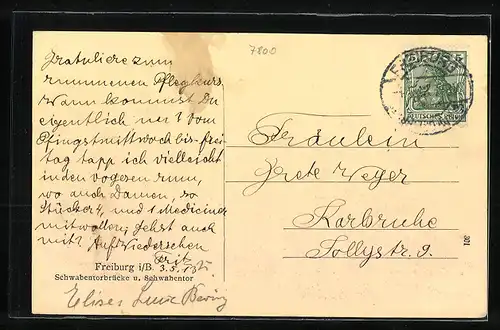 7800
Gratuliere zum
Pflegkurs.
Wann kommst Du
eigentlich mit? vom
Pfingstmittwoch bis frei-
tag tapp ich vielleicht
in den vogesen rum,
wo auch Damen, so
Stücker 4, und 1 Mediciner
mitwollen; gehst auch
mit? Auf Wiedersehen
Freiburg i/B. 3.5.
Schwabentorbrücke u. Schwabentor
DEUTSCHES REICH
Fräulein
Grete Weger
Karlsruhe
Jollystr. 9.
301